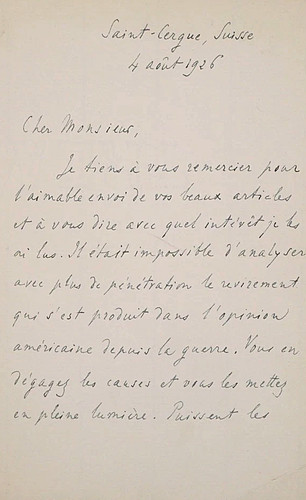 Saint-Cergue, Suisse
4 août 1926
Cher Monsieur,
Je tiens à vous remercier pour
l'aimable envoi de vos beaux articles
et à vous dire avec quel intérêt je les
ai lus. Il était impossible d'analyser
avec plus de pénétration le revirement
qui s'est produit dans l'opinion
américaine depuis la guerre. Vous en
dégagez les causes et vous les mettez
en pleine lumière. Puissent les